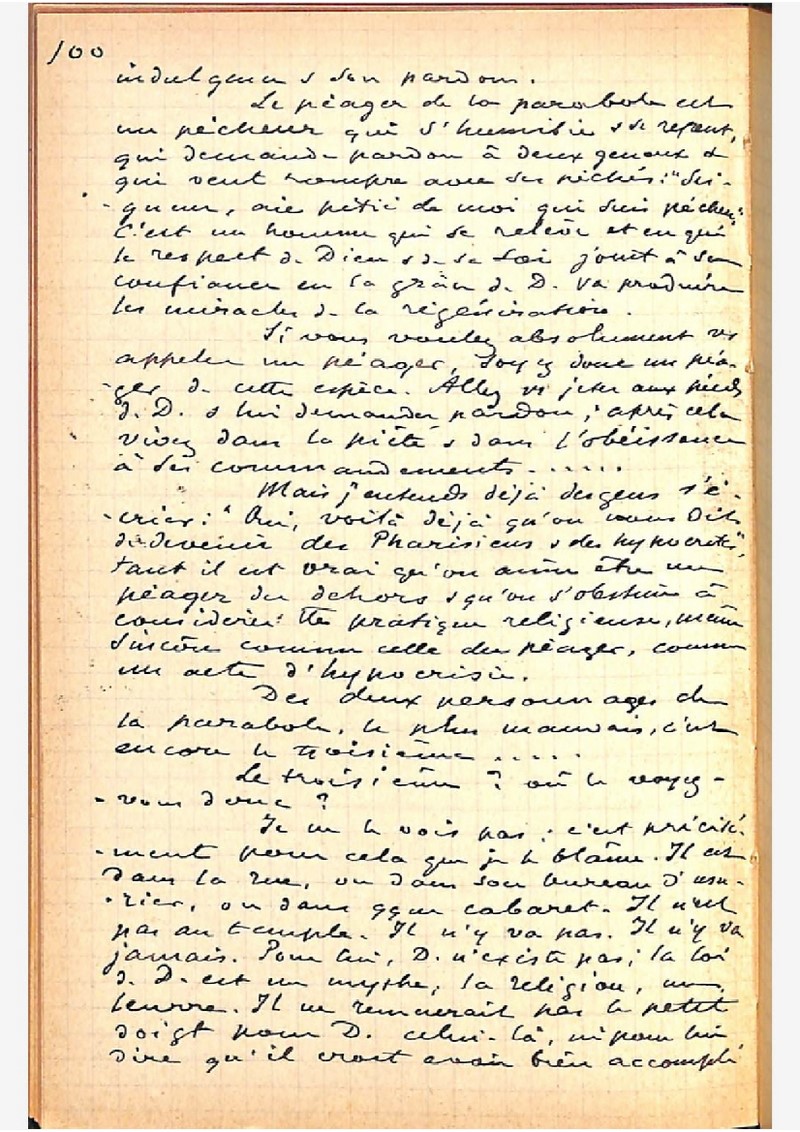 100
indulgence & son pardon.
Le péager de la parabole est
un pécheur qui s'humilie & se repent,
qui demande pardon à deux genoux &
qui veut rompre avec ses péchés: "Sei-
-gneur, aie pitié de moi qui suis pécheur".
C'est un homme qui se relève et en qui
le respect de Dieu & de sa Loi joint à sa
confiance en la grâce de D. va produire
les miracles de la régénération.
Si vous voulez absolument vs
appeler un péager, soyez donc un péa-
-ger de cette espèce. Allez vs jeter aux pieds
de D. & lui demander pardon; après cela
vivez dans la piété & dans l'obéissance
à ses commandements. .....
Mais j'entends déjà des gens s'é-
-crier: "Oui, voilà déjà qu'on nous dit
de devenir des Pharisiens & des hypocrites",
tant il est vrai qu'on aime être un
péager du dehors & qu'on s'obstine à
considérer tte pratique religieuse, même
sincère comme celle du péager, comme
un acte d'hypocrisie.
Des deux personnages de
la parabole, le plus mauvais, c'est
encore le troisième .....
Le troisième ? où le voyez-
-vous donc ?
Je ne le vois pas; c'est précisé-
-ment pour cela que je le blâme. Il est
dans la rue, ou dans son bureau d'usu-
-rier, ou dans qque cabaret. Il n'est
pas au temple. Il n'y va pas. Il n'y va
jamais. Pour lui, D. n'existe pas; la loi
de D. est un mythe, la religion, un
leurre. Il ne remuerait pas le petit
doigt pour D. celui-là, ni pour lui
dire qu'il croit avoir bien accompli